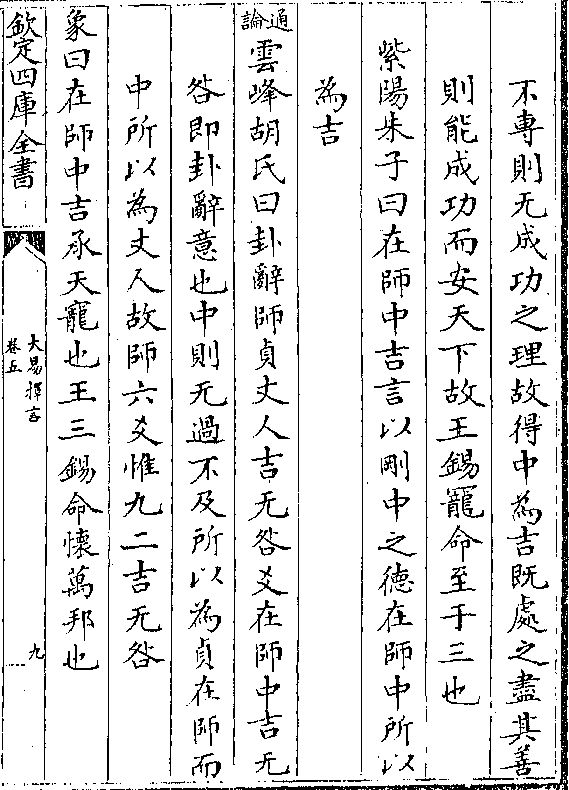 不專則无成功之理故得中為吉既處之盡其善
則能成功而安天下故王錫寵命至于三也
紫陽朱子曰在師中吉言以剛中之德在師中所以
為吉
通論
雲峰胡氏曰卦辭師貞丈人吉无咎爻在師中吉无
咎即卦辭意也中則无過不及所以為貞在師而
中所以為丈人故師六爻惟九二吉无咎
象曰在師中吉承天寵也王三錫命懷萬邦也
欽定四庫全書
大易擇言
卷五
九